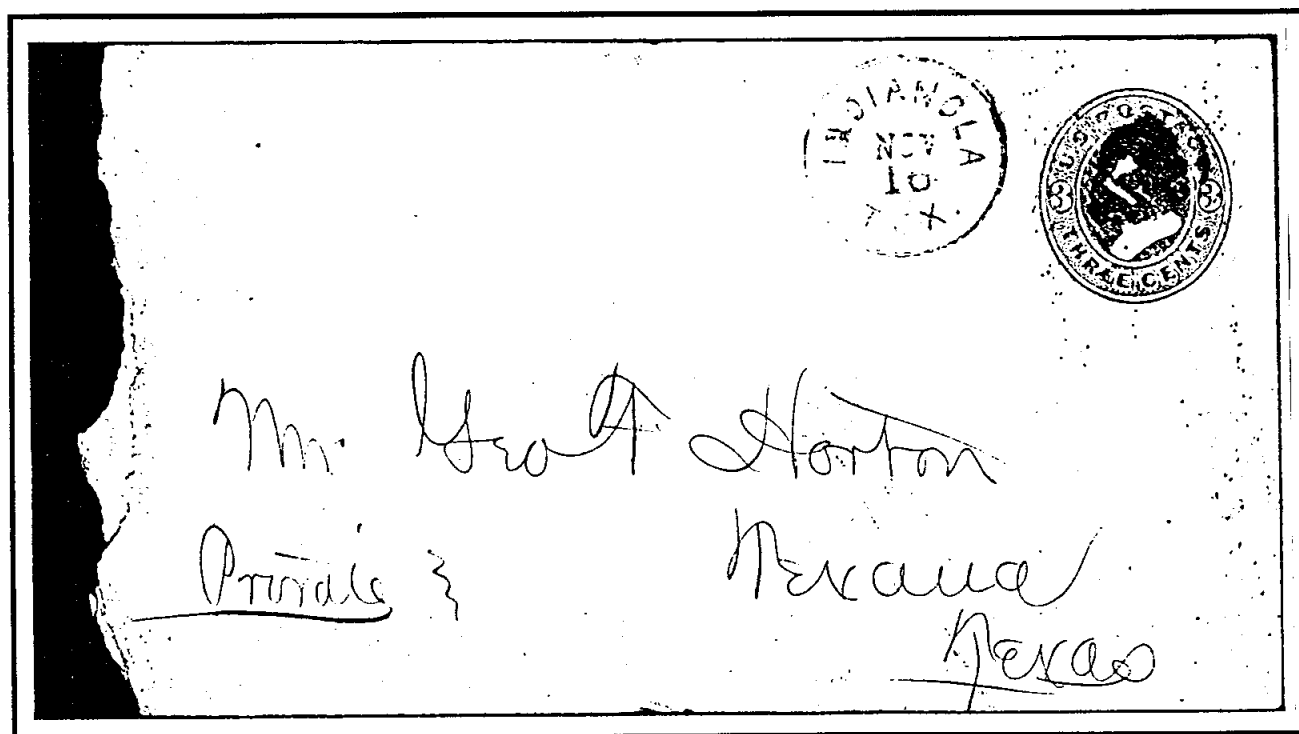 INDIANOLA
NOV
10
TEX.
U.S. POSTAGE
3 3
THREE CENTS
Mr. Geo F Horton
Private
Texana
Texas